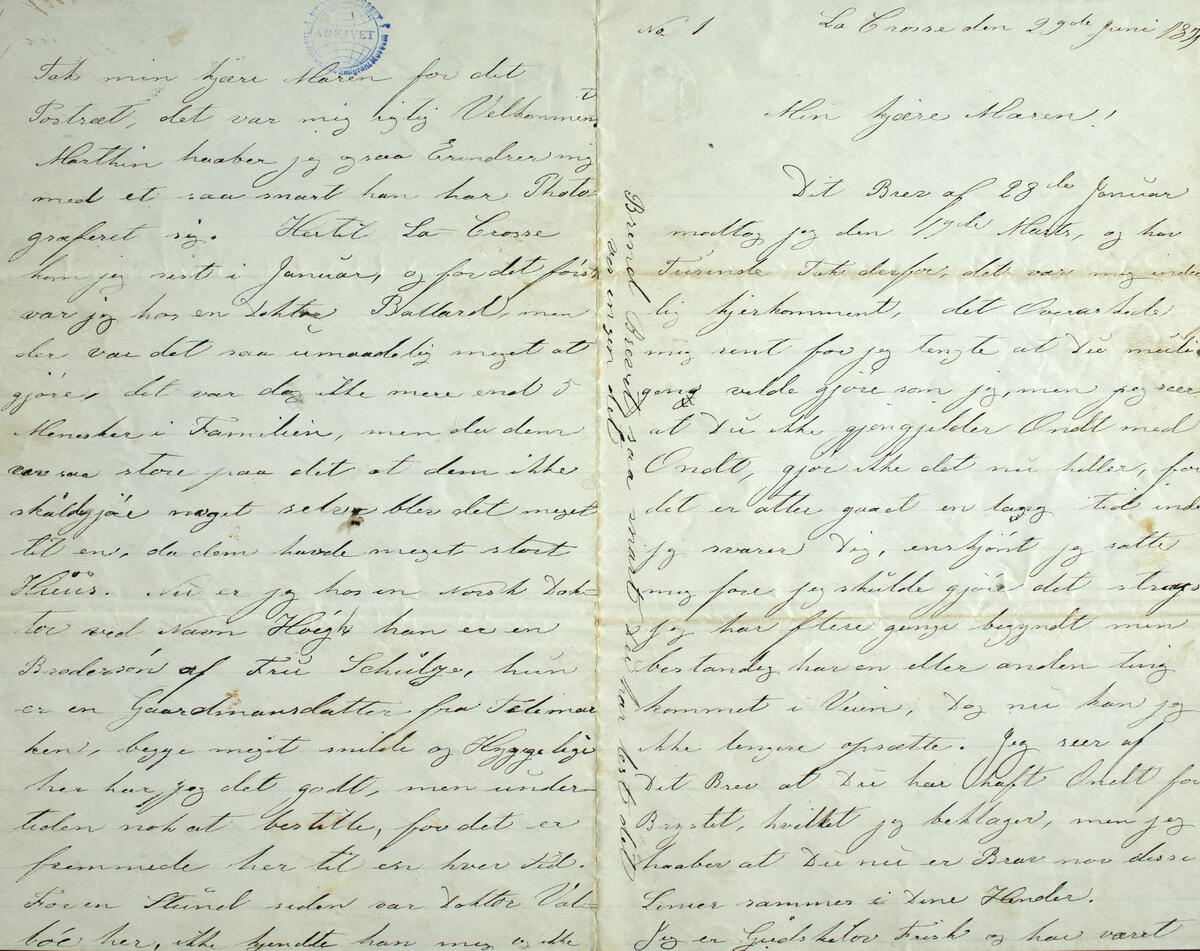 No 1
La Crosse den 29de Juni 187
Min kjære Maren!
Dit Brev af 28de Januar
modtog jeg den 19de Marts, og har
Tusinde Tak derfor, det var mig inder
lig kjerkomment, det Overaskede
mig rent for jeg tengte at Du
gang vilde gjøre som jeg, men jeg seer
at Du ikke gjengjelder Ondt med
Ondt, gjør ikke det nu heller, for
det er atter gaaet en lang tid inden
jeg svarer Dig, enskjønt jeg satte
mig fore jeg skulde gjøre det strags
jeg har flere gange begyndt men
bestandig har en eller anden ting
kommet i Veien, Dog nu kan jeg
ikke lengere opsætte. Jeg seer af
Dit Brev at Du har haft Ondt for
Brystet, hvilket jeg beklager, men jeg
haaber at Du nu er Brav nor disse
Linier rammer i Dine Hænder.
Jeg er Gudskelov Frisk og har været
Brænd Brevet saa snart Du har lest det
saa ingen det
ARKIVET
Tak min kjære Maren for det
Portræt, det var mig rigtig Velkomment
Marthin haaber jeg ogsaa Erindrer mig
med et saa snart han har Photo
graferet sig. Hertil La Crosse
kom jeg sist i Januar, og for det først
var jeg hos en Doktor Ballard, men
der var det saa umaadelig meget at
gjøre, det var dog ikke mere end 5
Menesker i Familien, men da dem
var saa store paa det at dem ikke
skulde gjøre noget selv blev det meget
til en, da dem havde meget stort
Huus. Nu er jeg hos en Norsk Dok-
tor ved Navn Høegh han er en
Brodersøn af Fru Schulze, hun
er en Gaardmansdatter fra Telimar
ken, begge meget snilde og Hyggelige
her har jeg det godt, men under-
tiden nok at bestille, for det er
fremmede her til en hver Tid.
For en Stund siden var Doktor Val-
bøe her, ikke kjendte han mig og ikke